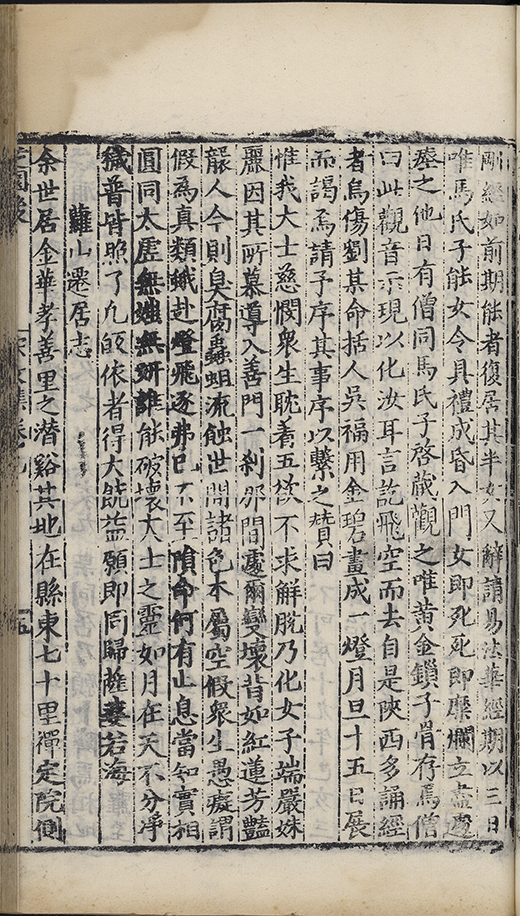 剛經如前期能者復居其半女又辭請易法華經期以三日
唯馬氏子能女令具禮成昏入門女即死死即糜爛立盡遽
瘞之他日有僧同馬氏子啓藏觀之唯黄金鎖子骨存焉僧
曰此觀音示現以化汝耳言訖飛空而去自是陜西多誦經
者烏傷劉其命括人吳福用金碧畫成一燈月旦十五日展
而謁焉請予序其事序以繫之賛曰
惟我大士慈憫衆生耽着五欲不求解脫乃化女子端嚴姝
麗因其所慕導入善門一刹那間遽爾變壞昔如紅蓮芳豔
襲人今則臭腐蟲蛆流蝕世間諸色本屬空假衆生愚癡謂
假爲真類蛾赴燈飛逐弗已不至隕命何有止息當知實相
圓同太虛無媸無妍誰能破壞大士之靈如月在天不分淨
穢普皆照了凡皈依者得大饒益願即同歸薩婆若海
蘿山遷居志
余世居金華孝善里之潜谿其地在縣東七十里禪定院側